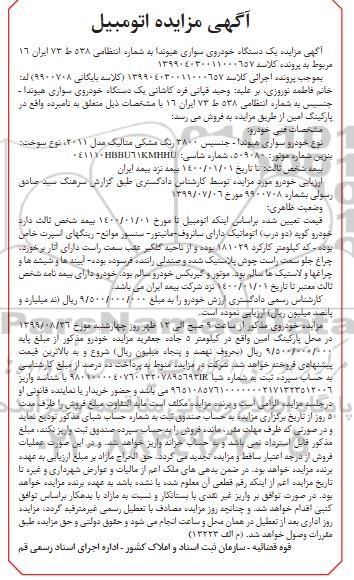 آگهی مزایده اتومبیل
آگهی مزایده یک دستگاه خودروی سواری هیوندا به شماره انتظامی ۵۳۸ ط ۷۳ ایران ۱۶
مربوط به پرونده کلاسه ۱۳۹۹۰۴۰۳۰۰۱۱۰۰۰۶۵۷
بموجب پرونده اجرائی کلاسه ۱۳۹۹۰۴۰۳۰۰۱۱۰۰۰۶۵۷ (کلاسه بایگانی ۹۹۰۰۷۰۸) له:
خانم فاطمه نوروزی، بر علیه: وحید قیانی فرد کاشانی یک دستگاه خودروی سواری هیوندا -
جنسیس به شماره انتظامی ۵۳۸ ط ۷۳ ایران ۱۶ با مشخصات ذیل متعلق به نامبرده واقع در
پارکینگ امین از طریق مزایده به فروش می رسد:
مشخصات فنی خودرو:
نوع خودرو سواری هیوندا - جنسیس ۳۸۰۰ رنگ مشکی متالیک مدل ۲۰۱۱، نوع سوخت:
بنزین شماره موتور: ۵۰۹۰۸۰، شماره شاسی: KMHHU۶۱HBBU۰۴۱۱۱۰
بیمه شخص ثالث: تا تاریخ ۱۴۰۰/۰۱/۰۱ بیمه نزد بیمه ایران
ارزیابی خودرو مورد مزایده توسط کارشناس دادگستری طبق گزارش سرهنگ سید صادق
رسولی بشماره ۹۹۰۰۷۰۸ مورخ ۱۳۹۹/۰۷/۰۶
وضعیت ظاهری:
قیمت تعیین شده براساس اینکه اتومبیل تا مورخ ۱۴۰۰/۰۱/۰۱ بیمه شخص ثالث دارد
خودرو کوپه (دو درب) اتوماتیک دارای سانروف-مانیتور- سنسور موانع- رینگهای اسپرت خاص
بوده - که کیلومتر کارکرد ۱۸۱۰۲۹ بوده و از ناحیه گلگیر عقب سمت راست دارای آثار برخورد،
چراغ جلو سمت راست جوش پلاستیک شده و صندلی راننده فرسوده بوده- آیینه ها و شیشه ها و
چراغها و لاستیک ها سالم بود. موتور و گیربکس خودرو سالم بود. خودرو دارای بیمه نامه شخص
ثالث معتبر تا تاریخ ۱۴۰۰/۰۱/۰۱ نزد شرکت بیمه ایران می باشد.
کارشناس رسمی دادگستری ارزش خودرو را به مبلغ ۹/۵۰۰/۰۰۰/۰۰۰ ریال (نه میلیارد و
پانصد میلیون ریال) ارزیابی نموده است.
مزایده خودروی مذکور از ساعت ۹ صبح الی ۱۲ ظهر روز چهارشنبه مورخ ۱۳۹۹/۰۸/۲۶
در محل پارکینگ امین واقع در کیلومتر ۵ جاده جعفریه مزایده خودرو مذکور از مبلغ پایه
۹/۵۰۰/۰۰۰/۰۰۰ ریال (بحروف نهصد و پنجاه میلیون ریال) شروع و به بالاترین قیمت
پیشنهادی فروخته خواهد شد. شرکت در مزایده منوط به پرداخت ده درصد از مبلغ کارشناسی
به حساب سپرده ثبت به شماره شبا با شناسه واریز
می باشد و حضور خریدار یا نماینده قانونی او
درجلسه مزایده الزامی است و برنده مزایده مکلف است مابه التفاوت مبلغ فروش را ظرف مدت
۵ روز از تاریخ برگزاری مزایده به حساب صندوق ثبت به شماره حساب شبای مذکور تودیع نماید
و در صورتی که ظرف مهلت مقرر، مانده فروش را به حساب سپرده صندوق ثبت واریز نکند، مبلغ
مذکور قابل استرداد نمی باشد و به حساب خزانه واریز خواهد شد. و در این صورت عملیات
فروش از درجه اعتبار ساقط و مزایده تجدید می گردد. حق الحراج مازاد بر مبلغ ارزیابی به عهده
برنده مزایده خواهد بود. در ضمن بدهی های ملک اعم از مالیات و عوارض شهرداری و غیره تا
تاریخ مزایده اعم از اینکه رقم قطعی آن معلوم شده یا نشده باشد به عهده برنده مزایده خواهد
بود. در صورت توافق بر واریز غیر نقدی با بستانکار و نسبت به مازاد با بدهکار براساس توافق
کتبی اقدام خواهد شد. و چنانچه روز مزایده مصادف با تعطیل رسمی غیرمترقبه گردد، مزایده
روز اداری بعد از تعطیل در همان محل و ساعت انجام می شود و حقوق دولتی و حق مزایده طبق
مقررات وصول خواهد شد. (م الف ۱۳۲۲۳)
قوه قضائیه - سازمان ثبت اسناد و املاک کشور - اداره اجرای اسناد رسمی قم